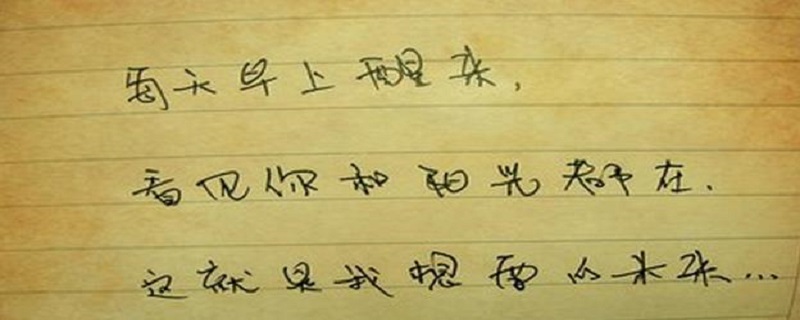 每天早上醒来,
看见你和阳光都在.
这就是我想要的未来...